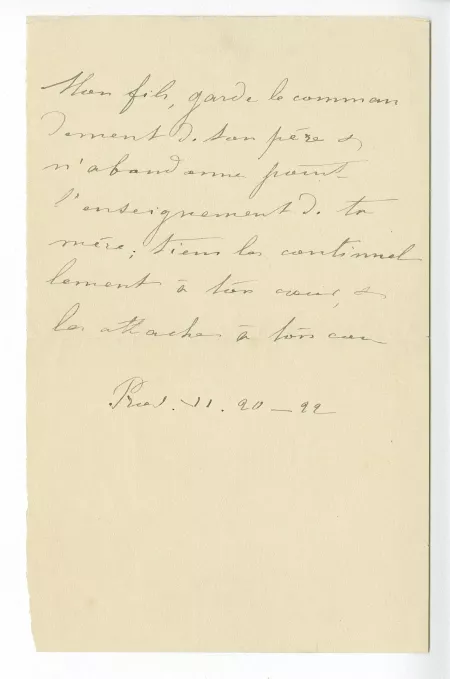 Mon fils, garde le comman
dement d. ton père &
n'abandonne point
l'enseignement d. ta
mère; tiens les continuel
lement à ton cœur, &
les attache à ton cou
Prov. VI. 20 — 22